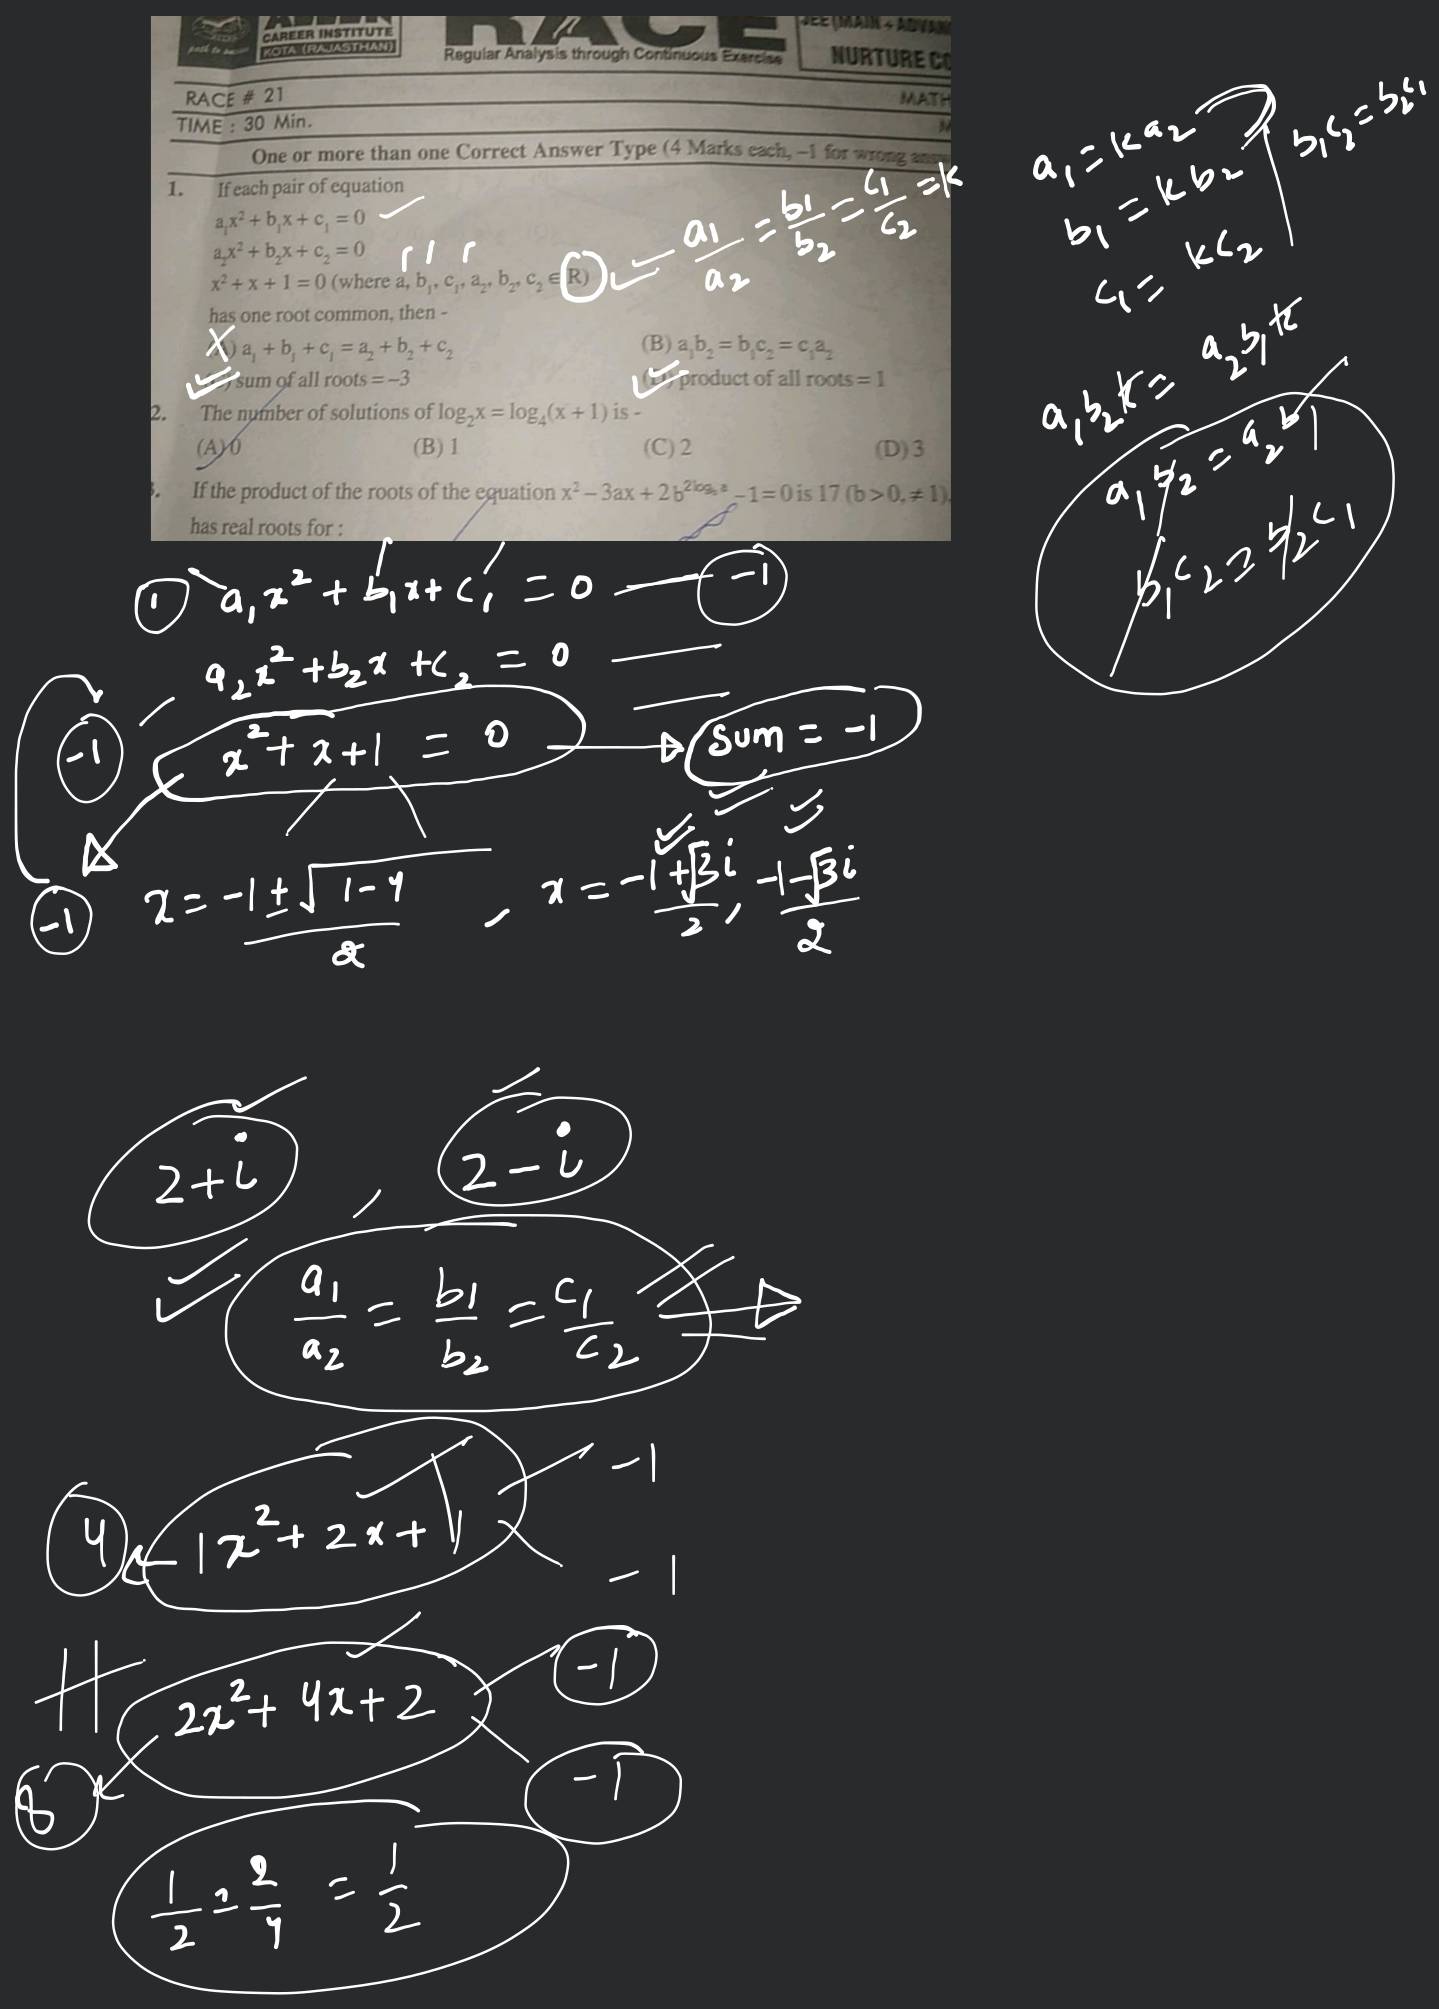 CAREER INSTITUTE
KOTA (RAJASTHAN)
Regular Analysis through Continuous Exercise
JEE (MAIN + ADVAN
NURTURE CO
RACE # 21
MATH
TIME : 30 Min.
M
One or more than one Correct Answer Type (4 Marks each, –1 for wrong ans
1. If each pair of equation
a₁x² + b₁x + c₁ = 0
a₂x² + b₂x + c₂ = 0
x² + x + 1 = 0 (where a, b₁, c₁, a₂, b₂, c₂ ∈ R)
has one root common, then -
) a₁ + b₁ + c₁ = a₂ + b₂ + c₂
(B) a₁b₂ = b₁c₂ = c₁a₂
) sum of all roots = –3
(D) product of all roots = 1
2. The number of solutions of log₂x = log₄(x + 1) is -
(A) 0
(B) 1
(C) 2
(D) 3
. If the product of the roots of the equation x² – 3ax + 2b^(2log_b a) – 1 = 0 is 17 (b > 0, ≠ 1),
has real roots for :
a₁/a₂ = b₁/b₂ = c₁/c₂ = k
a₁ = k a₂
b₁ = k b₂
c₁ = k c₂
b₁c₂ = b₂c₁
a₁b₂k = a₂b₁k
a₁b₂ = a₂b₁
b₁c₂ = b₂c₁
① a₁x² + b₁x + c₁ = 0 — -1
a₂x² + b₂x + c₂ = 0
-1 x² + x + 1 = 0 → sum = -1
-1 x = -1 ± √1-4 / 2 , x = -1+√3i / 2 , -1-√3i / 2
2+i , 2-i
a₁/a₂ = b₁/b₂ = c₁/c₂
-1
4 1x² + 2x + 1
-1
-1
2x² + 4x + 2
-1
8
1/2 = 2/4 = 1/2